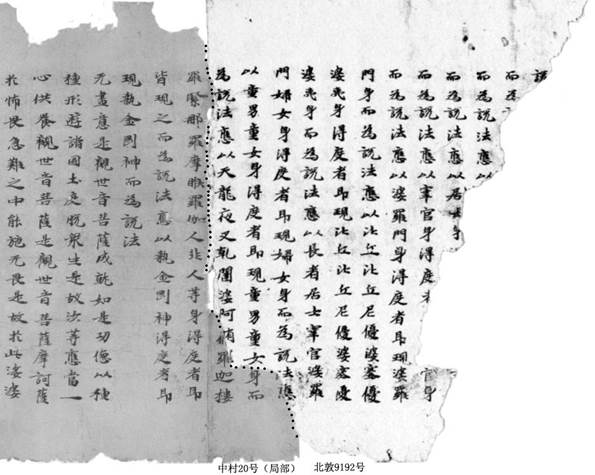 說
而為
而為說法應
而為說法應以居士身
而為說法應以宰官身得度者 官身
而為說法應以婆羅門身得度者即現婆羅
門身而為說法應以比丘比丘尼優婆塞優
婆夷身得度者即現比丘比丘尼優婆塞優
婆夷身而為說法應以長者居士宰官婆羅
門婦女身得度者即現婦女身而為說法應
以童男童女身得度者即現童男童女身而
為說法應以天龍夜叉乹闥婆阿脩羅迦樓
羅緊那羅摩睺羅伽人非人等身得度者即
皆現之而為說法應以執金剛神得度者即
現執金剛神而為說法
无盡意是觀世音菩薩成就如是功德以種
種形遊諸國土度脫眾生是故汝等應當一
心供養觀世音菩薩是觀世音菩薩摩訶薩
於怖畏急難之中能施无畏是故於此娑婆
中村20号（局部）
北敦9192号